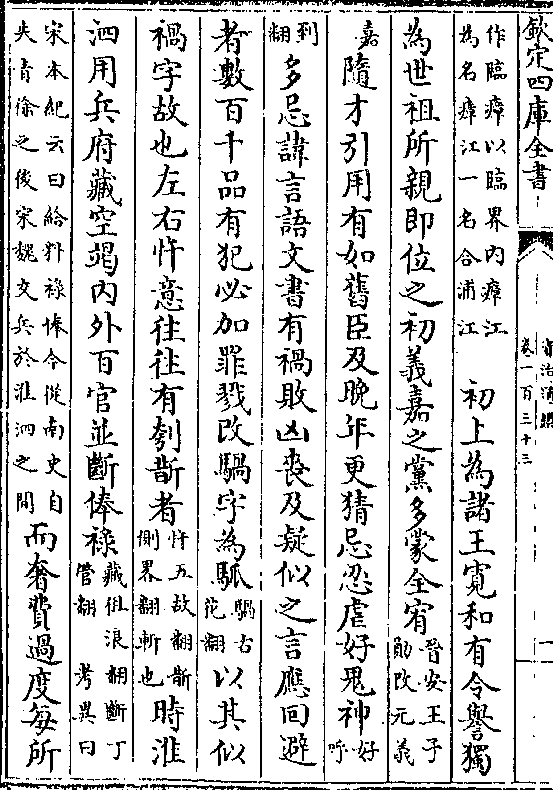 欽定四庫全書
資治通鑑
卷一百三十三
一
作臨瘴以臨界内瘴江為名瘴江一名合浦江初上為諸王寛和有令譽獨
為世祖所親即位之初義嘉之黨多蒙全宥晉安王子勛改元義
嘉隨才引用有如舊臣及晚年更猜忌忍虐好鬼神好呼
到翻多忌諱言語文書有禍敗凶喪及疑似之言應回避
者數百千品有犯必加罪戮改騧字為𩢍騧古花翻以其似
禍字故也左右忤意往往有刳斮者忤五故翻斮側界翻斬也時淮
泗用兵府藏空竭内外百官並斷俸禄藏徂浪翻斷丁管翻考異曰
宋本紀云日給料禄俸今從南史自失青徐之後宋魏交兵於淮泗之間而奢費過度每所